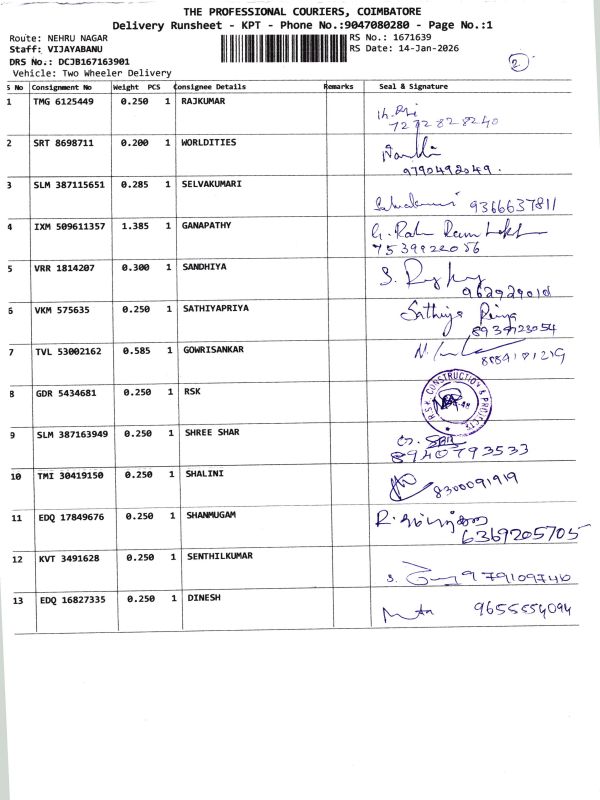 THE PROFESSIONAL COURIERS, COIMBATORE
Delivery Runsheet - KPT - Phone No.:9047080280 - Page No.:1
Route: NEHRU NAGAR
RS No.: 1671639
Staff: VIJAYABANU
RS Date: 14-Jan-2026
DRS No.: DCJB167163901
Vehicle: Two Wheeler Delivery
2
S No Consignment No Weight PCS Consignee Details Remarks Seal & Signature
1 TMG 6125449 0.250 1 RAJKUMAR
2 SRT 8698711 0.200 1 WORLDITIES
9790492049.
3 SLM 387115651 0.285 1 SELVAKUMARI
9366637811
4 IXM 509611357 1.385 1 GANAPATHY G. Ram
7539922056
5 VRR 1814207 0.300 1 SANDHIYA S.
6 VKM 575635 0.250 1 SATHIYAPRIYA Sathiya Priya
8939123054
7 TVL 53002162 0.585 1 GOWRISANKAR
8 GDR 5434681 0.250 1 RSK R.S.K. CONSTRUCTION & PROJECTS
9 SLM 387163949 0.250 1 SHREE SHAR
8940793533
10 TMI 30419150 0.250 1 SHALINI 8300091919
11 EDQ 17849676 0.250 1 SHANMUGAM
6369205705
12 KVT 3491628 0.250 1 SENTHILKUMAR
s. 9791097410
13 EDQ 16827335 0.250 1 DINESH 9655554094